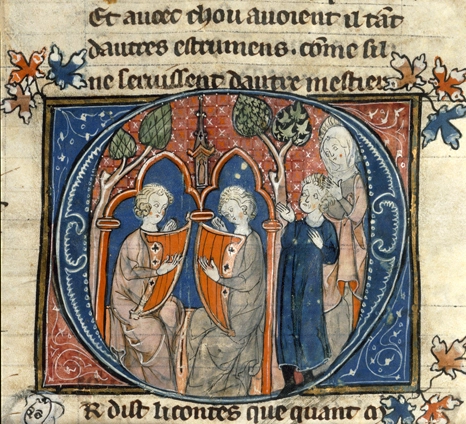 Et auoec chou auoient il tāt
dautres estrumens. cōme sil
ne seruissent dautre mestier.
OR dist li contes que quant